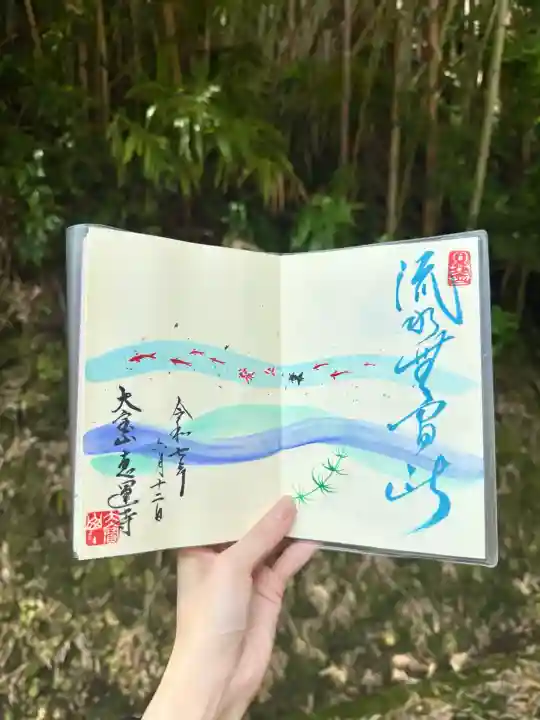 流水無間断
令和七年
六月十二日
大宝山恵運寺